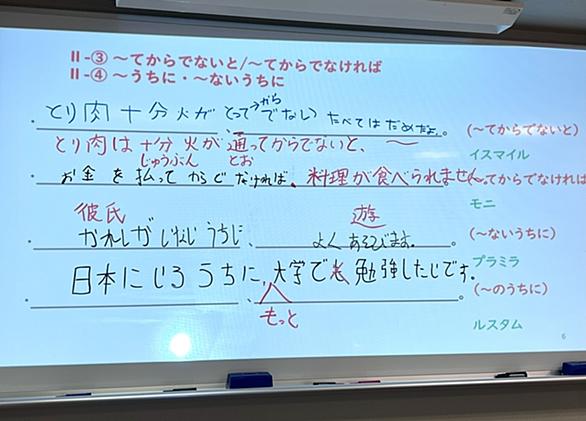 II-③ ～てからでないと/～てからでなければ
II-④ ～うちに・～ないうちに
とり肉 十分 火が とって から でない 、 たべては だめだよ。
(～てからでないと)
とり肉は 十分 火が 通ってからでないと、 ～
じゅうぶん とお
イスマイル
お金 を 払って からで なければ、料理が食べられません。
(～てからでなければ
モニ
彼氏 遊
かれしが いない うちに、 よく あそびます。
(～ないうちに)
プラミラ
日本に うちに、大学で 勉強したいです。
(～のうちに)
もっと
ルスタム
6